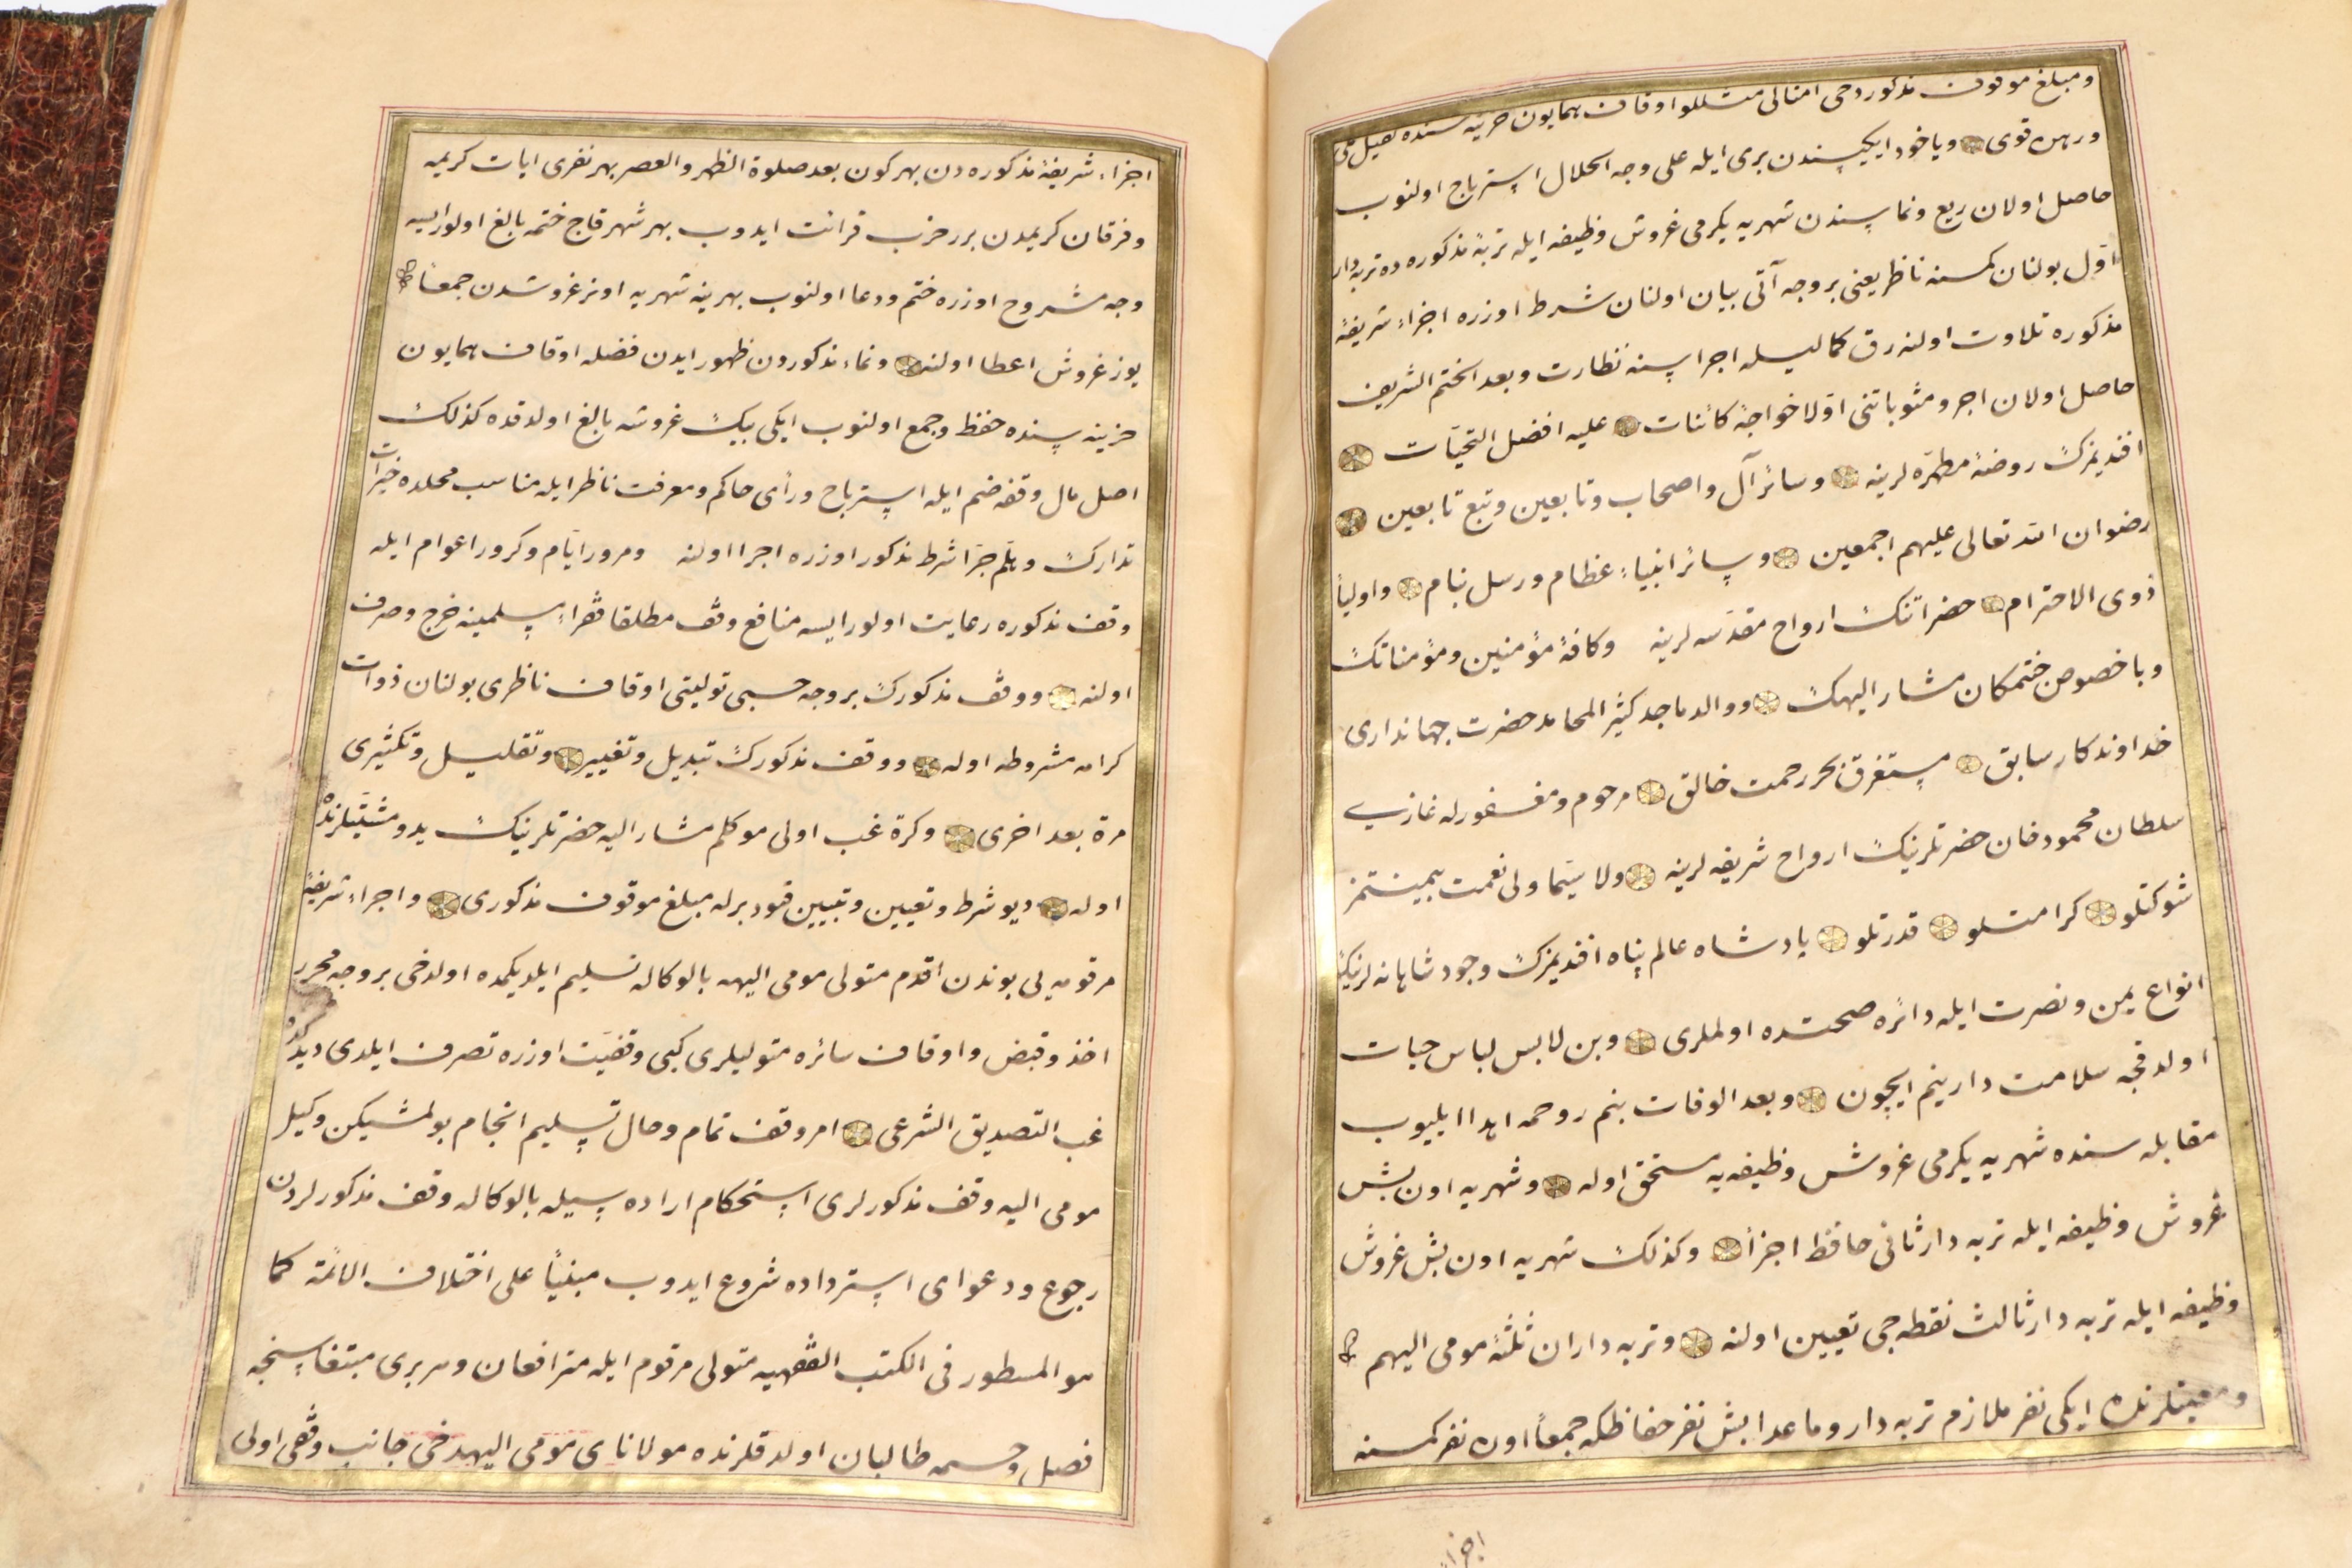 ومبلغ موقوف مذكور دخی امثالی مثللو اوقاف همایون خزینه سنده
ورهن قوی ویاخود ایكیسندن بری ایله علی وجه الحلال استرباح اولنوب
حاصل اولان ریع ونماسندن شهریه یكرمی غروش وظیفه ایله تربهٔ مذكوره ده تربه دار
اول بولنان كمسنه ناظر یعنی بر وجه آتی بیان اولنان شرط اوزره اجزاء شریفهٔ
مذكوره تلاوت اولنه رق كمالیله اجراسنه نظارت وبعد الختم الشریف
حاصل اولان اجر ومثوباتنی اولا خواجهٔ كائنات علیه افضل التحیات
افندیمزك روضهٔ مطهره لرینه وسائر آل واصحاب وتابعین وتبع تابعین
رضوان الله تعالی علیهم اجمعین وسائر انبیاء عظام ورسل بنام واولیاء
ذوی الاحترام حضراتنك ارواح مقدسه لرینه وكافهٔ مؤمنین ومؤمناتك
وباخصوص ختمكان مشار الیهك ووالد ماجد كثیر المحامد حضرت جهانداری
خداوندكار سابق مستغرق بحر رحمت خالق مرحوم ومغفور له غازی
سلطان محمود خان حضرتلرینك ارواح شریفه لرینه ولا سیما ولی نعمت بیمنتمز
شوكتلو كرامتلو قدرتلو پادشاه عالم پناه افندیمزك وجود شاهانه لرینك
انواع یمن ونصرت ایله دائره صحتده اولملری وبن لابس لباس حیات
اولدقجه سلامت دارینم ایچون وبعد الوفات بنم روحمه اهدا ایلیوب
مقابله سنده شهریه یكرمی غروش وظیفه یه مستحق اوله وشهریه اون بش
غروش وظیفه ایله تربه دار ثانی حافظ اجزا وكذلك شهریه اون بش غروش
وظیفه ایله تربه دار ثالث نقطه جی تعیین اولنه وتربه داران ثلثهٔ مومی الیهم
ومعینلرندن ایكی نفر ملازم تربه دار وماعدا بش نفر حفاظكه جمعاً اون نفر كمسنه
اجزاء
اجزاء شریفهٔ مذكوره دن بهر كون بعد صلوة الظهر والعصر بهر نفری ایات كریمه
وفرقان كریمدن برر حزب قرائت ایدوب بهر شهر قاج ختمه بالغ اولور ایسه
وجه مشروح اوزره ختم ودعا اولنوب بهرینه شهریه اونر غروشدن جمعاً
یوز غروش اعطا اولنه ونماء مذكوردن ظهور ایدن فضله اوقاف همایون
خزینه سنده حفظ وجمع اولنوب ایكی بیك غروشه بالغ اولدقده كذلك
اصل مال وقفه ضم ایله استرباح ورأی حاكم ومعرفت ناظر ایله مناسب محلده خیرات
تدارك وهلم جرا شرط مذكور اوزره اجرا اولنه ومرور ایام وكرور اعوام ایله
وقف مذكوره رعایت اولور ایسه منافع وقف مطلقا فقراء مسلمینه خرج وصرف
اولنه ووقف مذكورك بر وجه حسبی تولیتی اوقاف ناظری بولنان ذوات
كرامه مشروطه اوله ووقف مذكورك تبدیل وتغییر وتقلیل وتكثیری
مرة بعد اخری وكرة غب اولی موكلم مشار الیه حضرتلرینك ید ومشیتلرنده
اوله دیو شرط وتعیین وتبیین قیود برله مبلغ موقوف مذكوری واجزاء شریفهٔ
مرقومه یی بوندن اقدم متولی مومی الیهه بالوكاله تسلیم ایلدیكمده اولدخی بر وجه محرر
اخذ وقبض واوقاف سائره متولیلری كبی وقفیت اوزره تصرف ایلدی دیدكده
غب التصدیق الشرعی امر وقف تمام وحال تسلیم انجام بولمشیكن وكیل
مومی الیه وقف مذكورلری استحكام اراده سیله بالوكاله وقف مذكورلردن
رجوع ودعوای استرداده شروع ایدوب مبنیاً علی اختلاف الائمة كما
هو المسطور فی الكتب الفقهیه متولی مرقوم ایله مترافعان وهر بری مبتغاسنجه
فصل وحسمه طالبان اولدقلرنده مولانای مومی الیهدخی جانب وقفی اولی